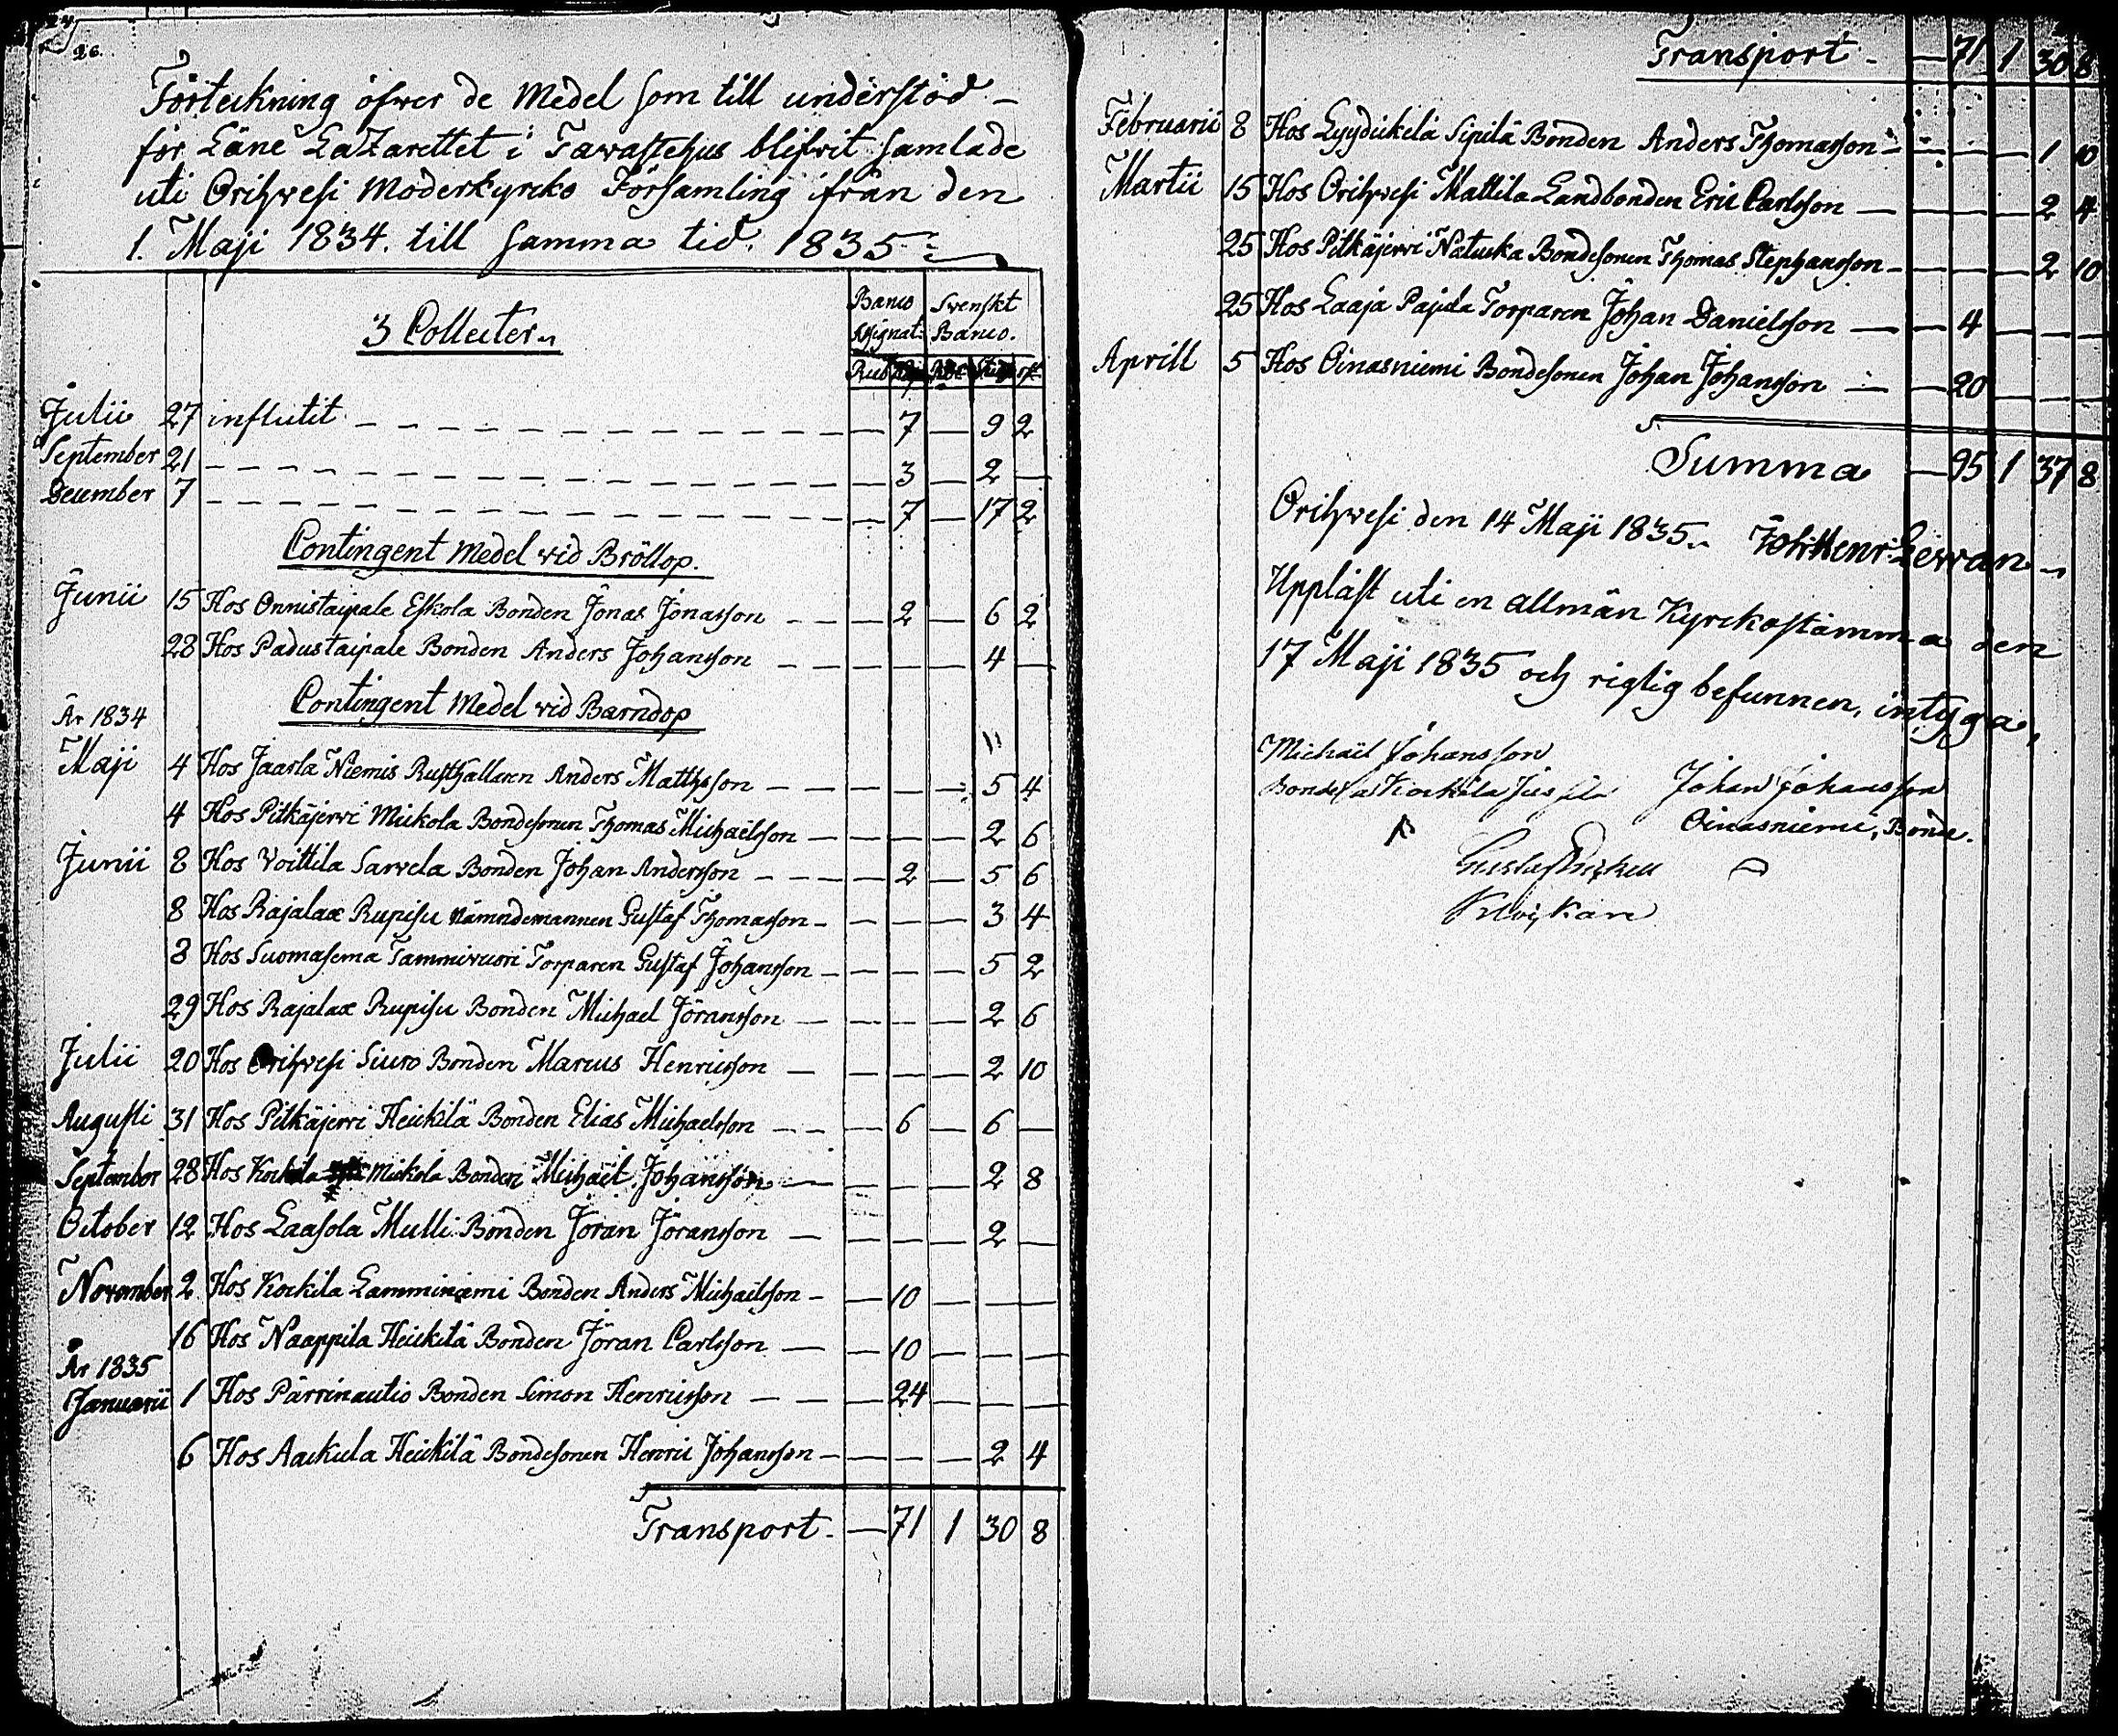 26.
Förteckning öfwer de Medel som till understöd –
för Läne LaZarettet i Tavastehus blifvit samlade
uti Orihvesi Moderkyrcko Församling ifrån den
1. Maji 1834. till samma tid. 1835.
3 Collecter.
Banco Assignat: Svenskt Banco.
Rub Kop Rdr Skill rst
Julii 27 influtit — 7 — 9 2
September 21 — 3 — 2 —
December 7 — 7 — 17 2
Contingent Medel vid Bröllop.
Junii 15 Hos Onnistaipale Eskola Bonden Jonas Jonasson — 2 — 6 2
28 Hos Padustaipale Bonden Anders Johansson — — — 4 —
Contingent Medel vid Barndop
År 1834
Maji 4 Hos Jaarla Niemis Rusthållaren Anders Mattsson — — — 5 4
4 Hos Pitkäjervi Mickola Bondesonen Thomas Michaelsson — — — 2 6
Junii 8 Hos Voittila Sarvela Bonden Johan Andersson — 2 — 5 6
8 Hos Rajalax Rupisu Nämndemannen Gustaf Thomasson — — — 3 4
8 Hos Suomasema Tammivuori Torparen Gustaf Johansson — — — 5 2
29 Hos Rajalax Rupisu Bonden Michael Jöransson — — — 2 6
Julii 20 Hos Orihvesi Siuro Bonden Marcus Henricsson — — — 2 10
Augusti 31 Hos Pitkäjervi Heickilä Bonden Elias Michaelsson — 6 — 6 —
September 28 Hos Kockila Mickola Bonden Michaël Johansson — — — 2 8
October 12 Hos Laasola Mulli Bonden Jöran Jöransson — — — 2 —
November 2 Hos Kockila Lamminiemi Bonden Anders Michaëlsson — 10 — — —
16 Hos Naappila Heickilä Bonden Jöran Carlsson — 10 — — —
År 1835
Januarii 1 Hos Pärrinautio Bonden Simon Henricsson — 24 — — —
6 Hos Aackula Heickilä Bondesonen Henric Johansson — — — 2 4
Transport — 71 1 30 8
Transport — 71 1 30 8
Februarii 8 Hos Lyydickilä Sipilä Bonden Anders Thomasson — — — 1 10
Martii 15 Hos Orihvesi Mattila Landbonden Eric Carlsson — — — 2 4
25 Hos Pitkäjervi Natucka Bondesonen Thomas Stephansson — — — 2 10
25 Hos Laaja Pajula Torparen Johan Danielsson — 4 — — —
Aprill 5 Hos Oinasniemi Bondesonen Johan Johansson — 20 — — —
Summa — 95 1 37 8
Orihvesi den 14 Maji 1835. Joh: Henr:
Uppläst uti en allmän Kyrckostämma den
17 Maji 1835 och rigtig befunnen, intyga,
Michaël Johansson
Johan Johansson
Oinasniemi, Bonde.
Gustaf